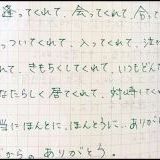 逢ってくれて、会ってくれて、合っ
っついてくれて、入ってくれて、注が
れて、きもちくしてくれて、いつもどんな
なたらしく居てくれて、対峙してく
当にほんとに、ほんとうに、ありが
からの ありがとう。